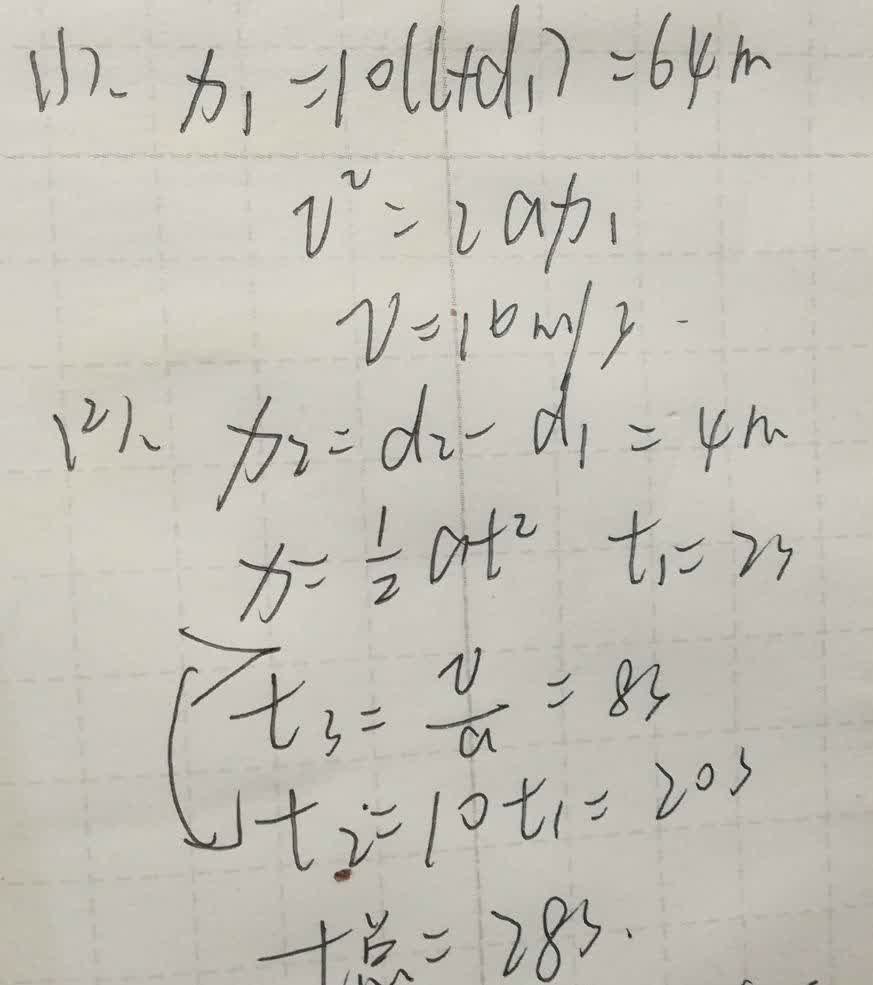 (1). x₁=10(l+d₁)=64m
v²=2ax₁
v=16m/s.
(2). x₂=d₂-d₁=4m
x=½at² t₁=2s
t₃=v/a=8s
t₂=10t₁=20s
t总=28s.